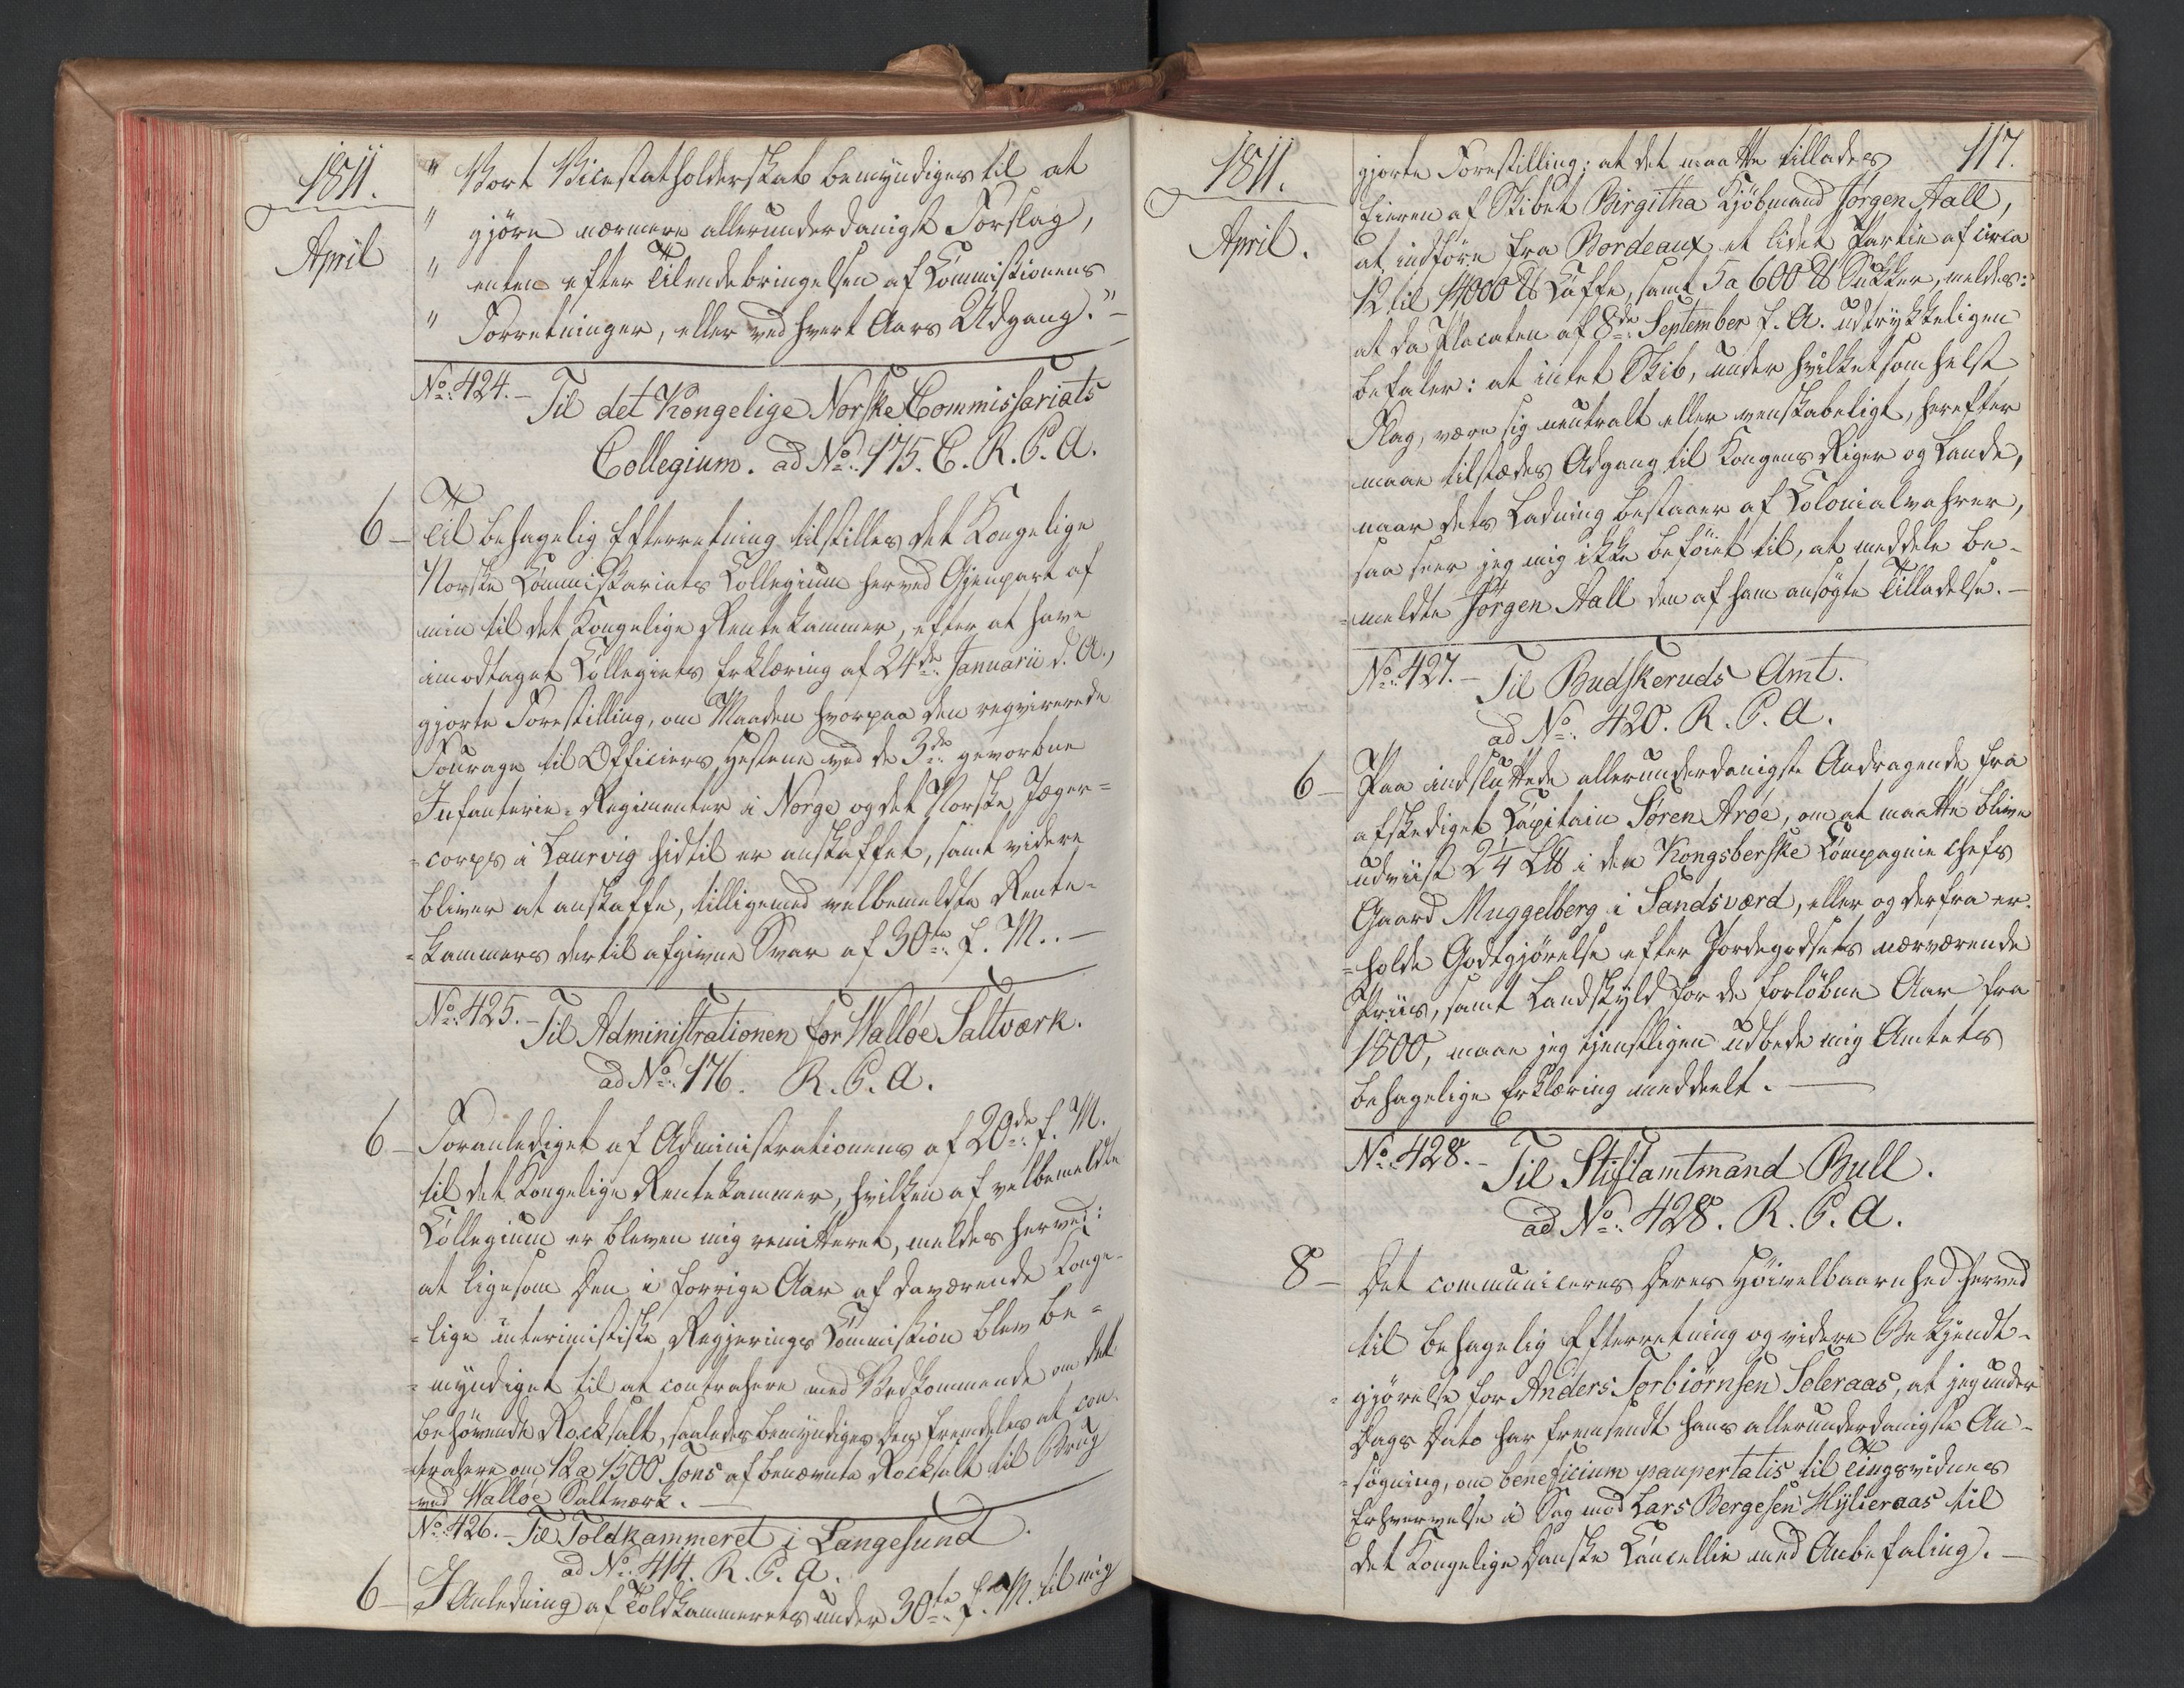 1811.
April
" Vort Vicestatholderskab bemyndiges til at
" gjöre nærmere allerunderdanigst Forslag,
" enten efter Tilendebringelsen af Commissionens
" Forretninger, eller ved hvert Aars Udgang." –
No. 424. – Til det Kongelige Norske Commissariats
Collegium. ad No. 175. C. R. P. A.
6 – Til behagelig Efterretning tilstilles det Kongelige
Norske Commissariats Collegium herved Gjenpart af
min til det Kongelige Rentekammer, efter at have
imodtaget Collegiets Erklæring af 24de Januarii d. A.,
gjorte Forestilling, om Maaden hvorpaa den reqvirerede
Fourage til Officiers Hestene ved de 3de gevorbne
Infanterie-Regimenter i Norge og det Norske Jæger-
-corps i Laurvig hidtil er anskaffet, samt videre
bliver at anskaffe, tilligemed velbemeldte Rente-
-kammers dertil afgivne Svar af 30te f. M. –
No. 425. – Til Administrationen for Walløe Saltværk.
ad No. 176. R. P. A.
6 – Foranlediget af Administrationens af 20de f. M.
til det Kongelige Rentekammer, hvilken af velbemeldte
Collegium er bleven mig remitteret, meldes herved:
at ligesom Den i forrige Aar af daværende Konge-
-lige interimistiske Regjerings Commission blev be-
-myndiget til at contrahere med Vedkommende om det
behövende Rocksalt, saaledes bemyndiges Den fremdeles at con-
-trahere om 12 a 1500 Tons af benævnte Rocksalt til Brug
ved Walløe Saltværk. –
No. 426. – Til Toldkammeret i Langesund.
ad No. 414. R. P. A.
6 – I Anledning af Toldkammerets under 30te f. M. til mig
1811.
April.
117.
gjorte Forestilling; at det maatte tillades
Eieren af Skibet Birgitha Kjöbmand Jørgen Aall,
at indföre fra Bordeaux et lidet Partie af circa
12 til 14000 ℔ Caffe, samt 5 a 600 ℔ Sukker, meldes:
at da Placaten af 8de September f. A. udtrykkeligen
befaler: at intet Skib, under hvilketsomhelst
Flag, være sig neutralt eller venskabeligt, herefter
maae tilstædes Adgang til Kongens Riger og Lande,
naar dets Ladning bestaaer af Colonialvahrer,
saa seer jeg mig ikke beföiet til, at meddele be-
-meldte Jørgen Aall den af ham ansögte Tilladelse. –
No. 427. – Til Budskeruds Amt.
ad No. 420. R. P. A.
6 – Paa indsluttede allerunderdanigste Andragende fra
afskediget Capitain Søren Arøe, om at maatte blive
udviist 2 1/4 L℔ i den Kongsbergske Compagnie Chefs
Gaard Muggelberg i Sandsværd, eller og derfra er-
-holde Godtgjörelse efter Jordegodsets nærværende
Priis, samt Landskyld for de forløbne Aar fra
1800, maae jeg tjenstligen udbede mig Amtets
behagelige Erklæring meddeelt. –
No. 428. – Til Stiftamtmand Bull.
ad No. 428. R. P. A.
8 – Det communiceres Deres Höivelbaarnhed herved
til behagelig Efterretning og videre Bekjendt-
-gjörelse for Anders Torbiörnsen Soleraas, at jeg under
Dags Dato har fremsendt hans allerunderdanigste An-
-søgning, om beneficium paupertatis til Tingsvidnes
Erhvervelse i Sag mod Lars Bergesen Hylleraas til
det Kongelige Danske Cancellie med Anbefaling. –